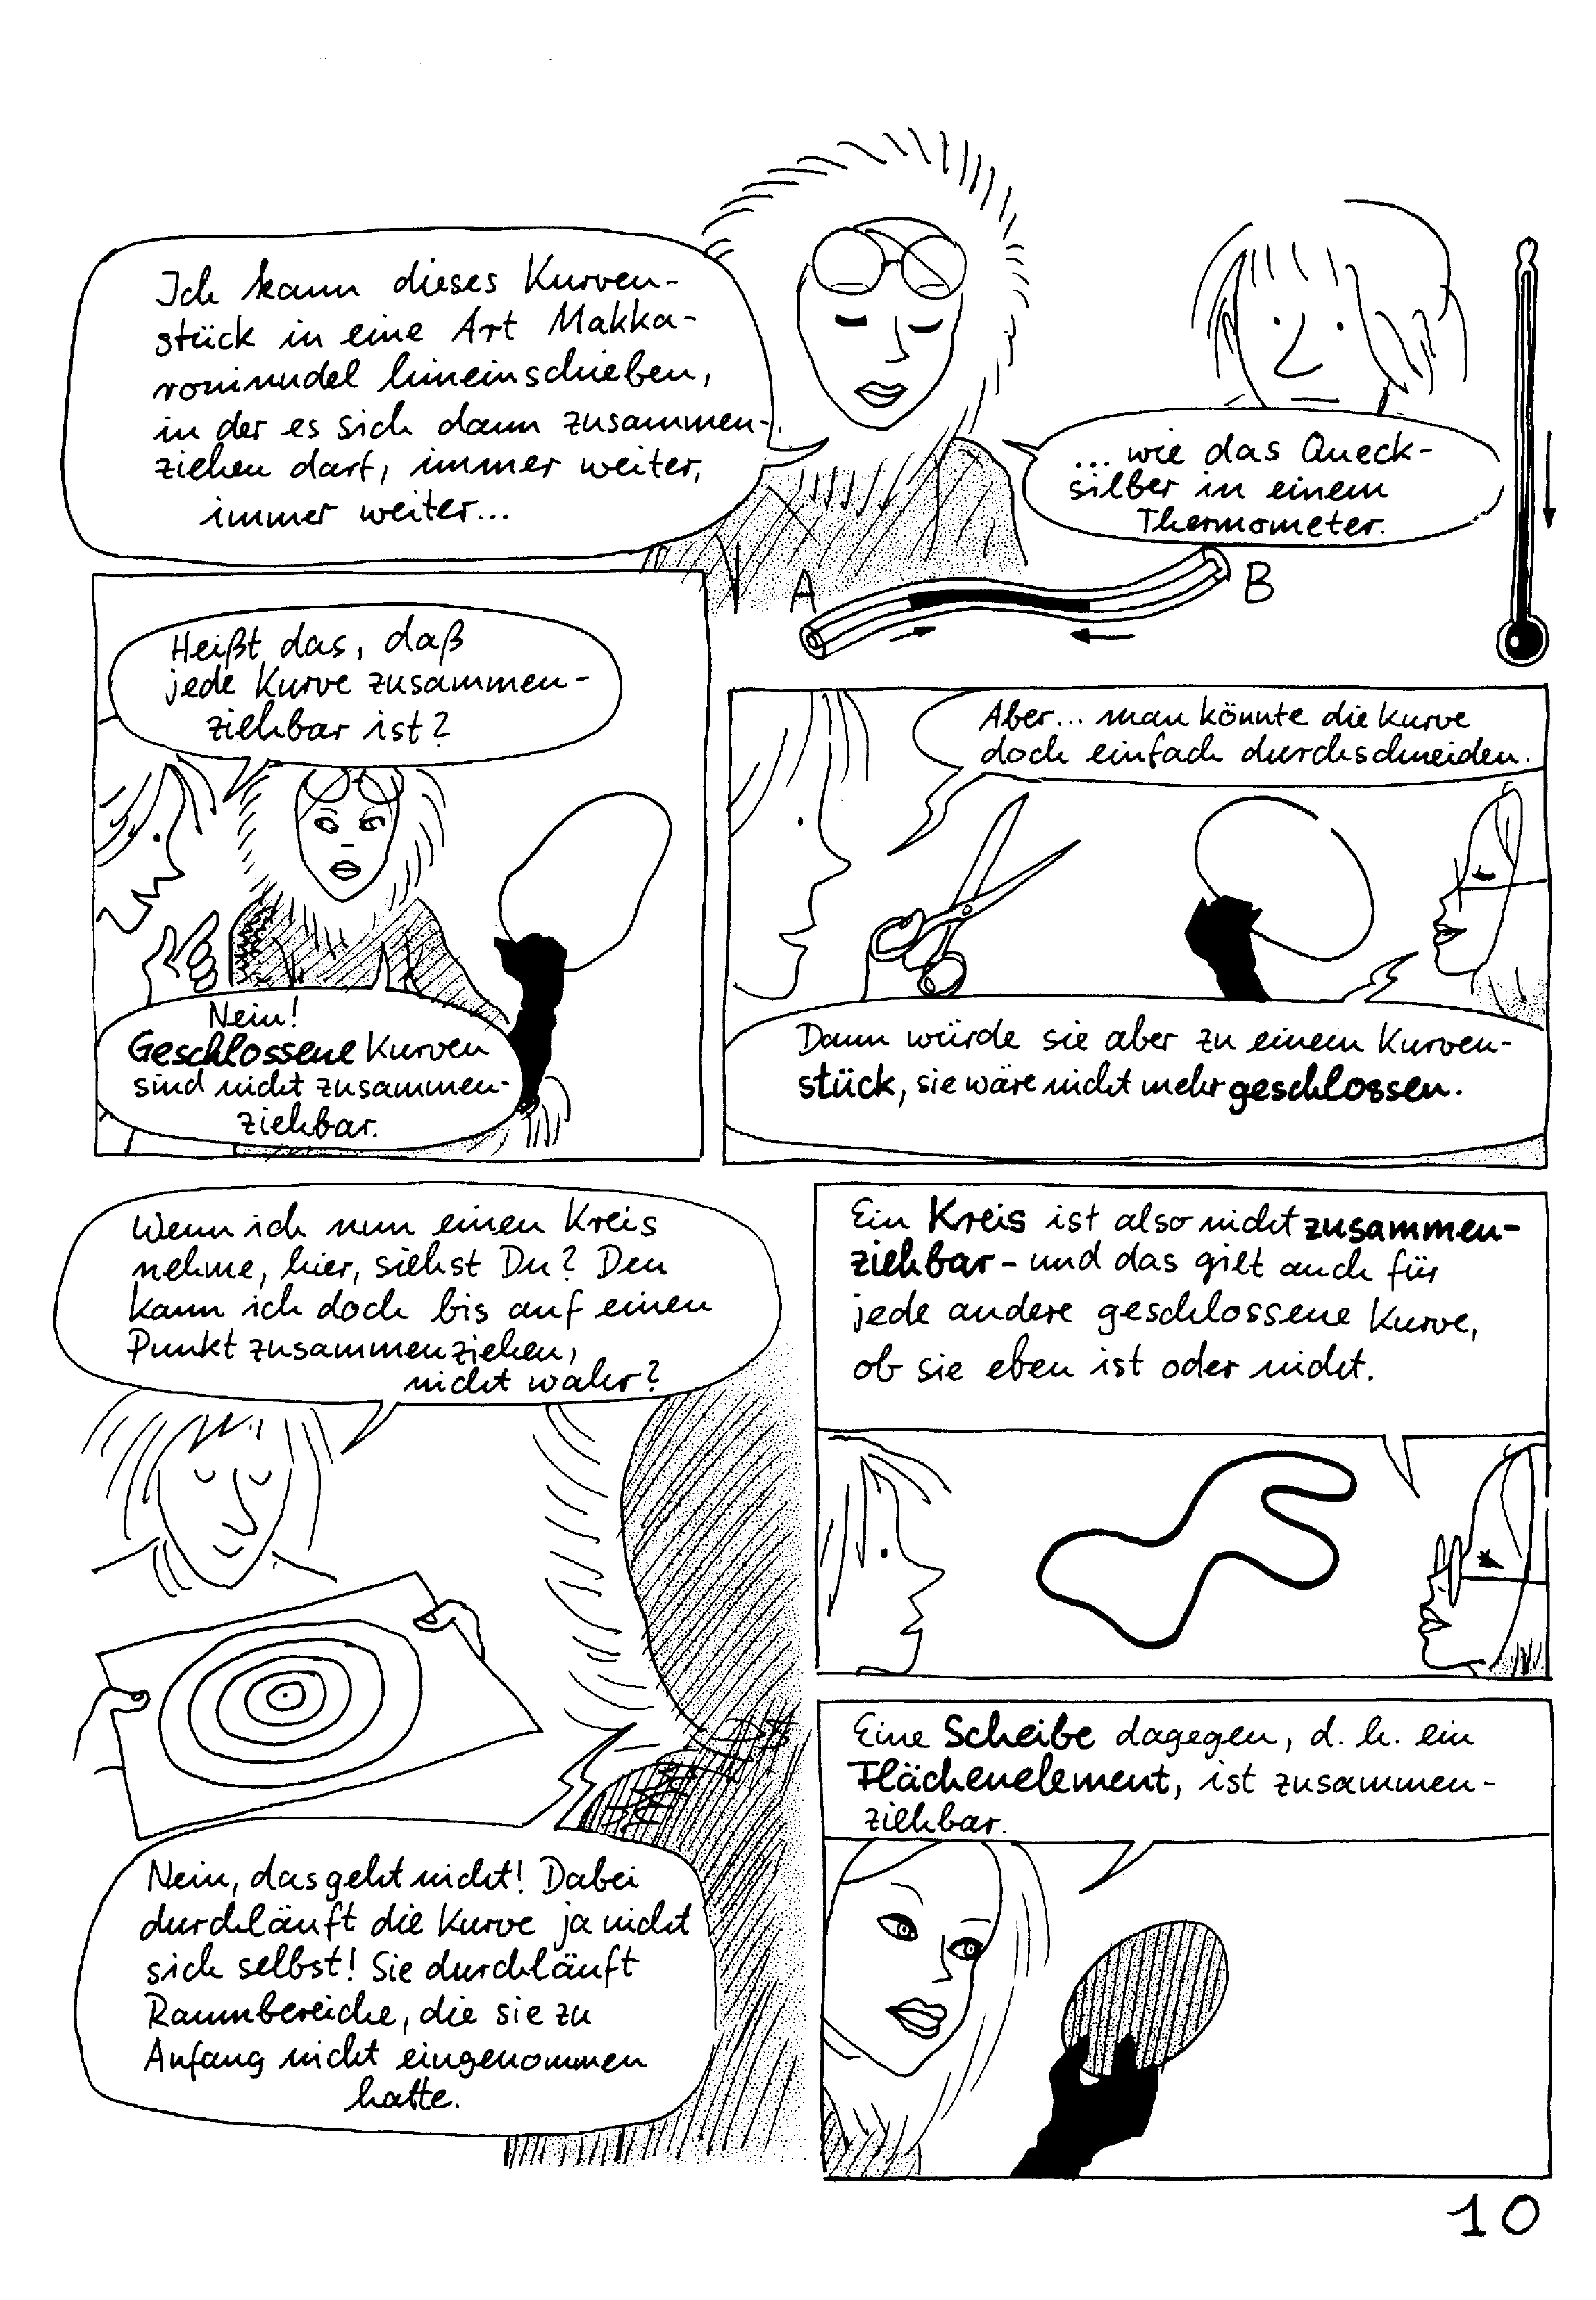 Ich kann dieses Kurven-
stück in eine Art Makka-
roninudel hineinschieben,
in der es sich dann zusammen-
ziehen darf, immer weiter,
immer weiter...
... wie das Queck-
silber in einem
Thermometer.
A
B
Heißt das, daß
jede Kurve zusammen-
ziehbar ist?
Nein!
Geschlossene Kurven
sind nicht zusammen-
ziehbar.
Aber... man könnte die Kurve
doch einfach durchschneiden.
Dann würde sie aber zu einem Kurven-
stück, sie wäre nicht mehr geschlossen.
Wenn ich nun einen Kreis
nehme, hier, siehst Du? Den
kann ich doch bis auf einen
Punkt zusammenziehen,
nicht wahr?
Nein, das geht nicht! Dabei
durchläuft die Kurve ja nicht
sich selbst! Sie durchläuft
Raumbereiche, die sie zu
Anfang nicht eingenommen
hatte.
Ein Kreis ist also nicht zusammen-
ziehbar - und das gilt auch für
jede andere geschlossene Kurve,
ob sie eben ist oder nicht.
Eine Scheibe dagegen, d. h. ein
Flächenelement, ist zusammen-
ziehbar.
10